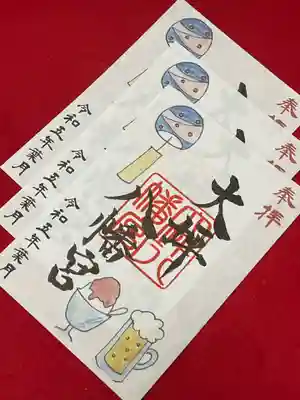 奉拝
奉拝
奉拝
大
八幡宮
令和五年葉月
令和五年葉月
令和五年葉月